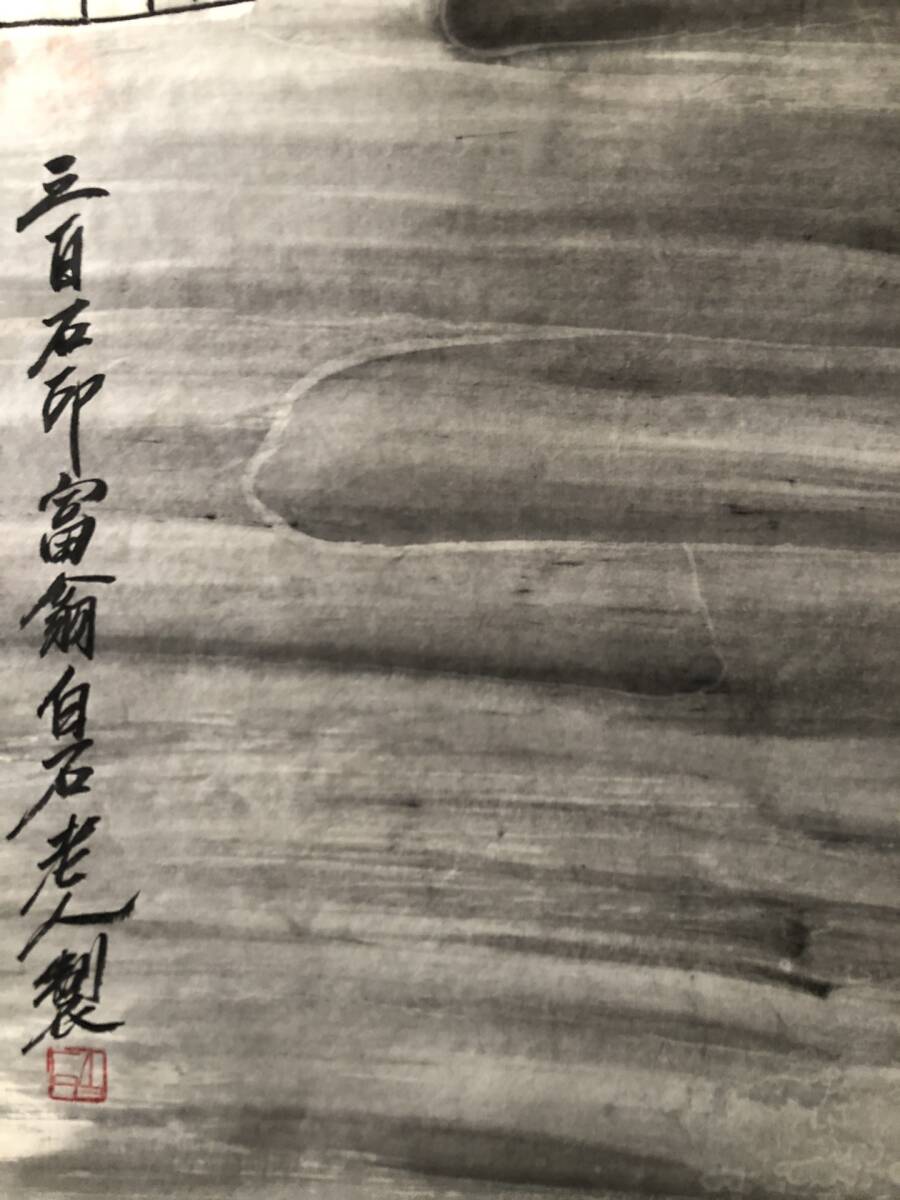 三百石印富翁白石老人製